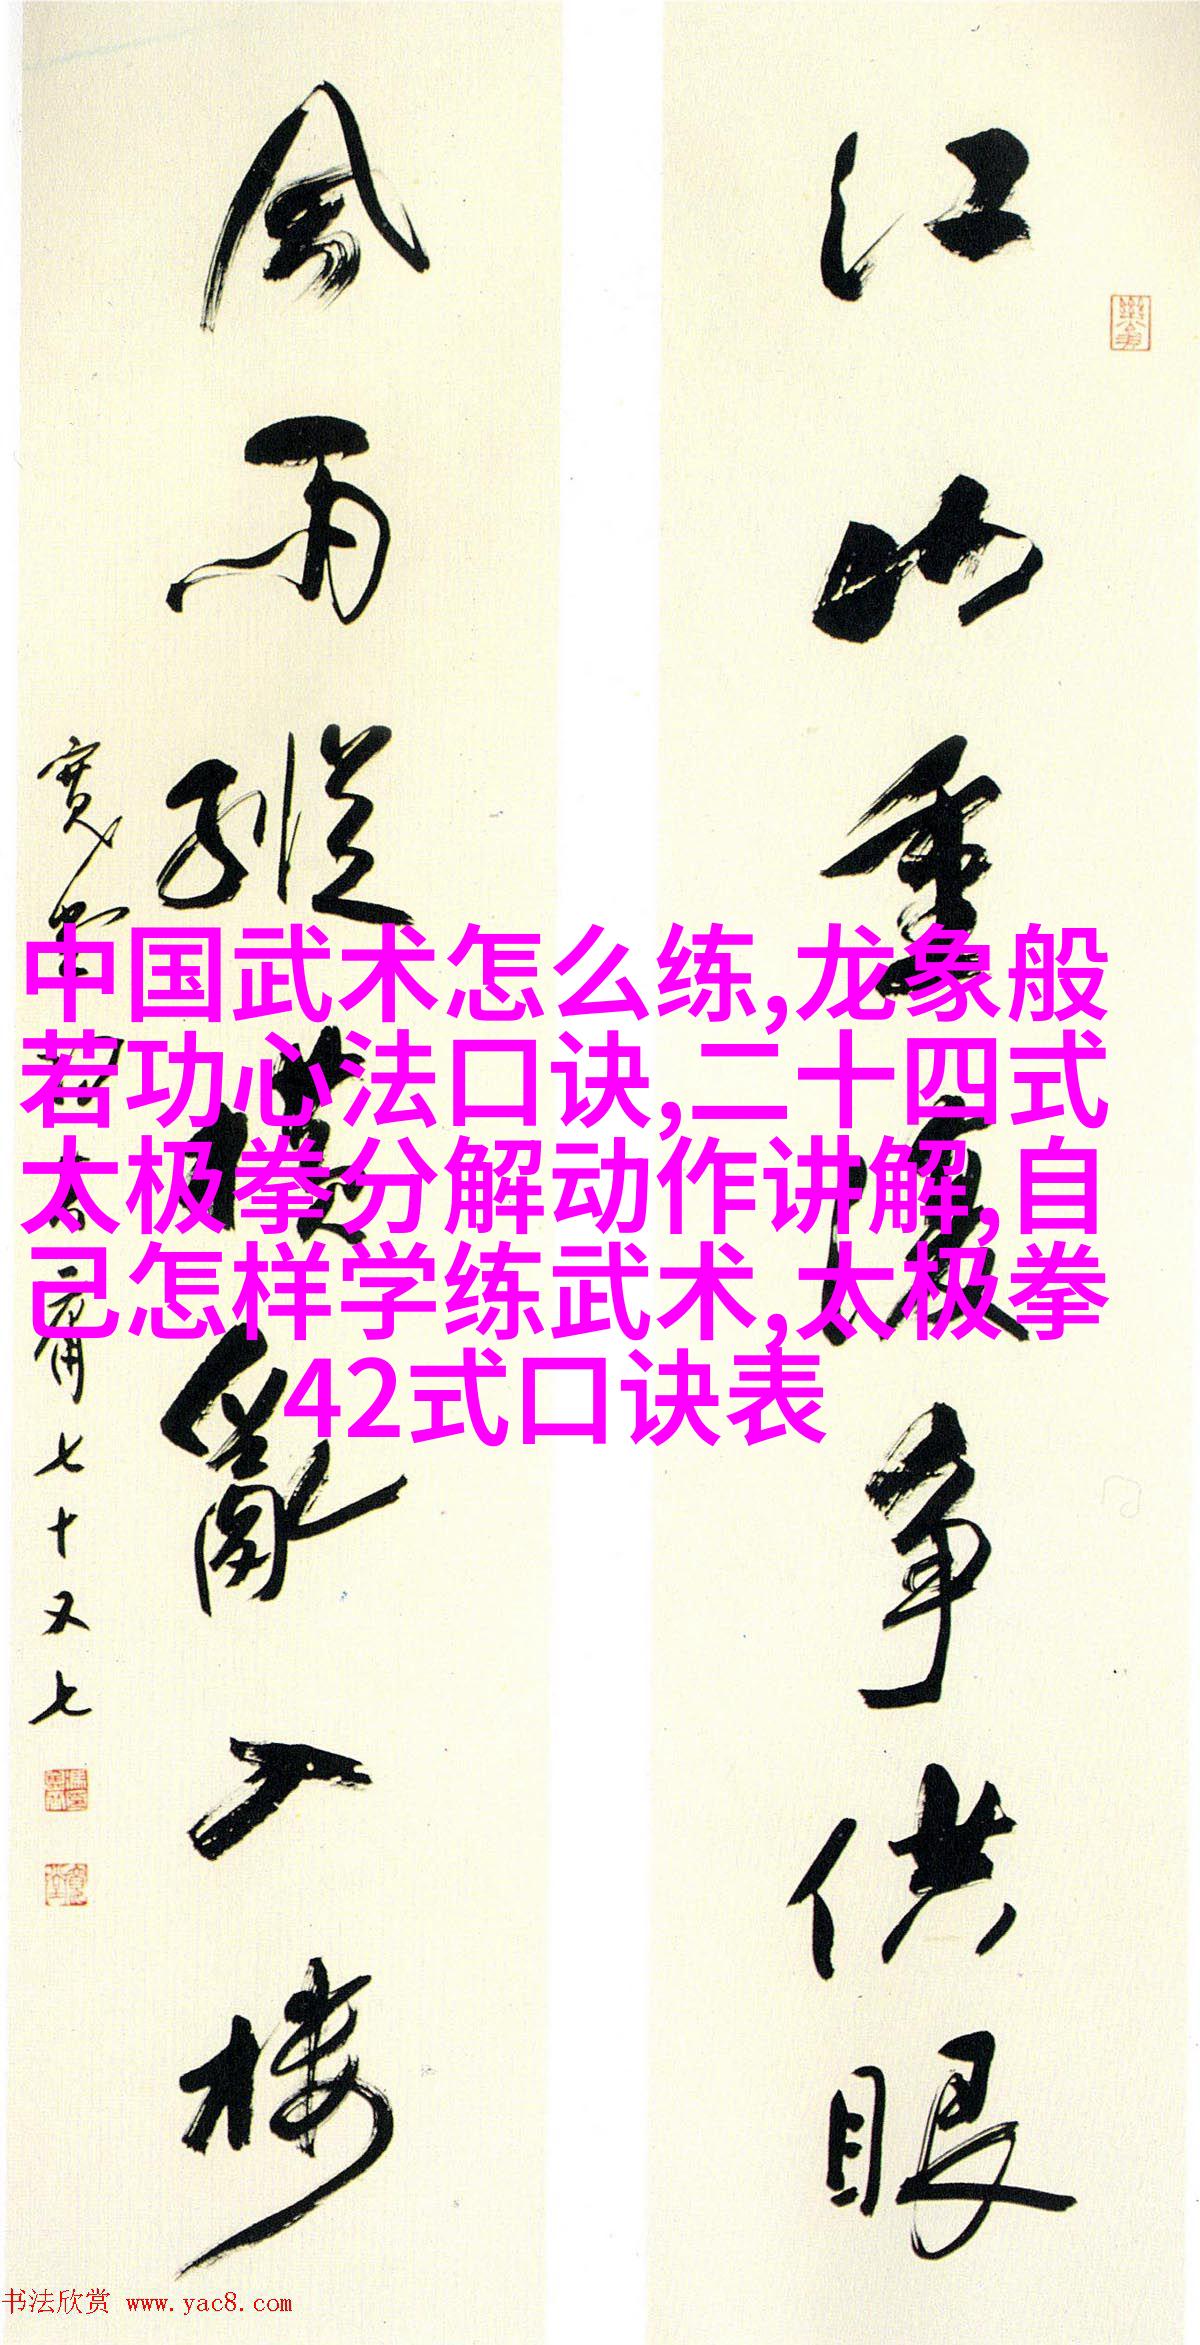 江山重複争供眼
風雨縱橫亂入楼
寬堂馮其庸七十又七
中国武术怎么练,龙象般
若功心法口诀,二十四式
太极拳分解动作讲解,自
己怎样学练武术,太极拳
42式口诀表
书法欣赏 www.yac8.com